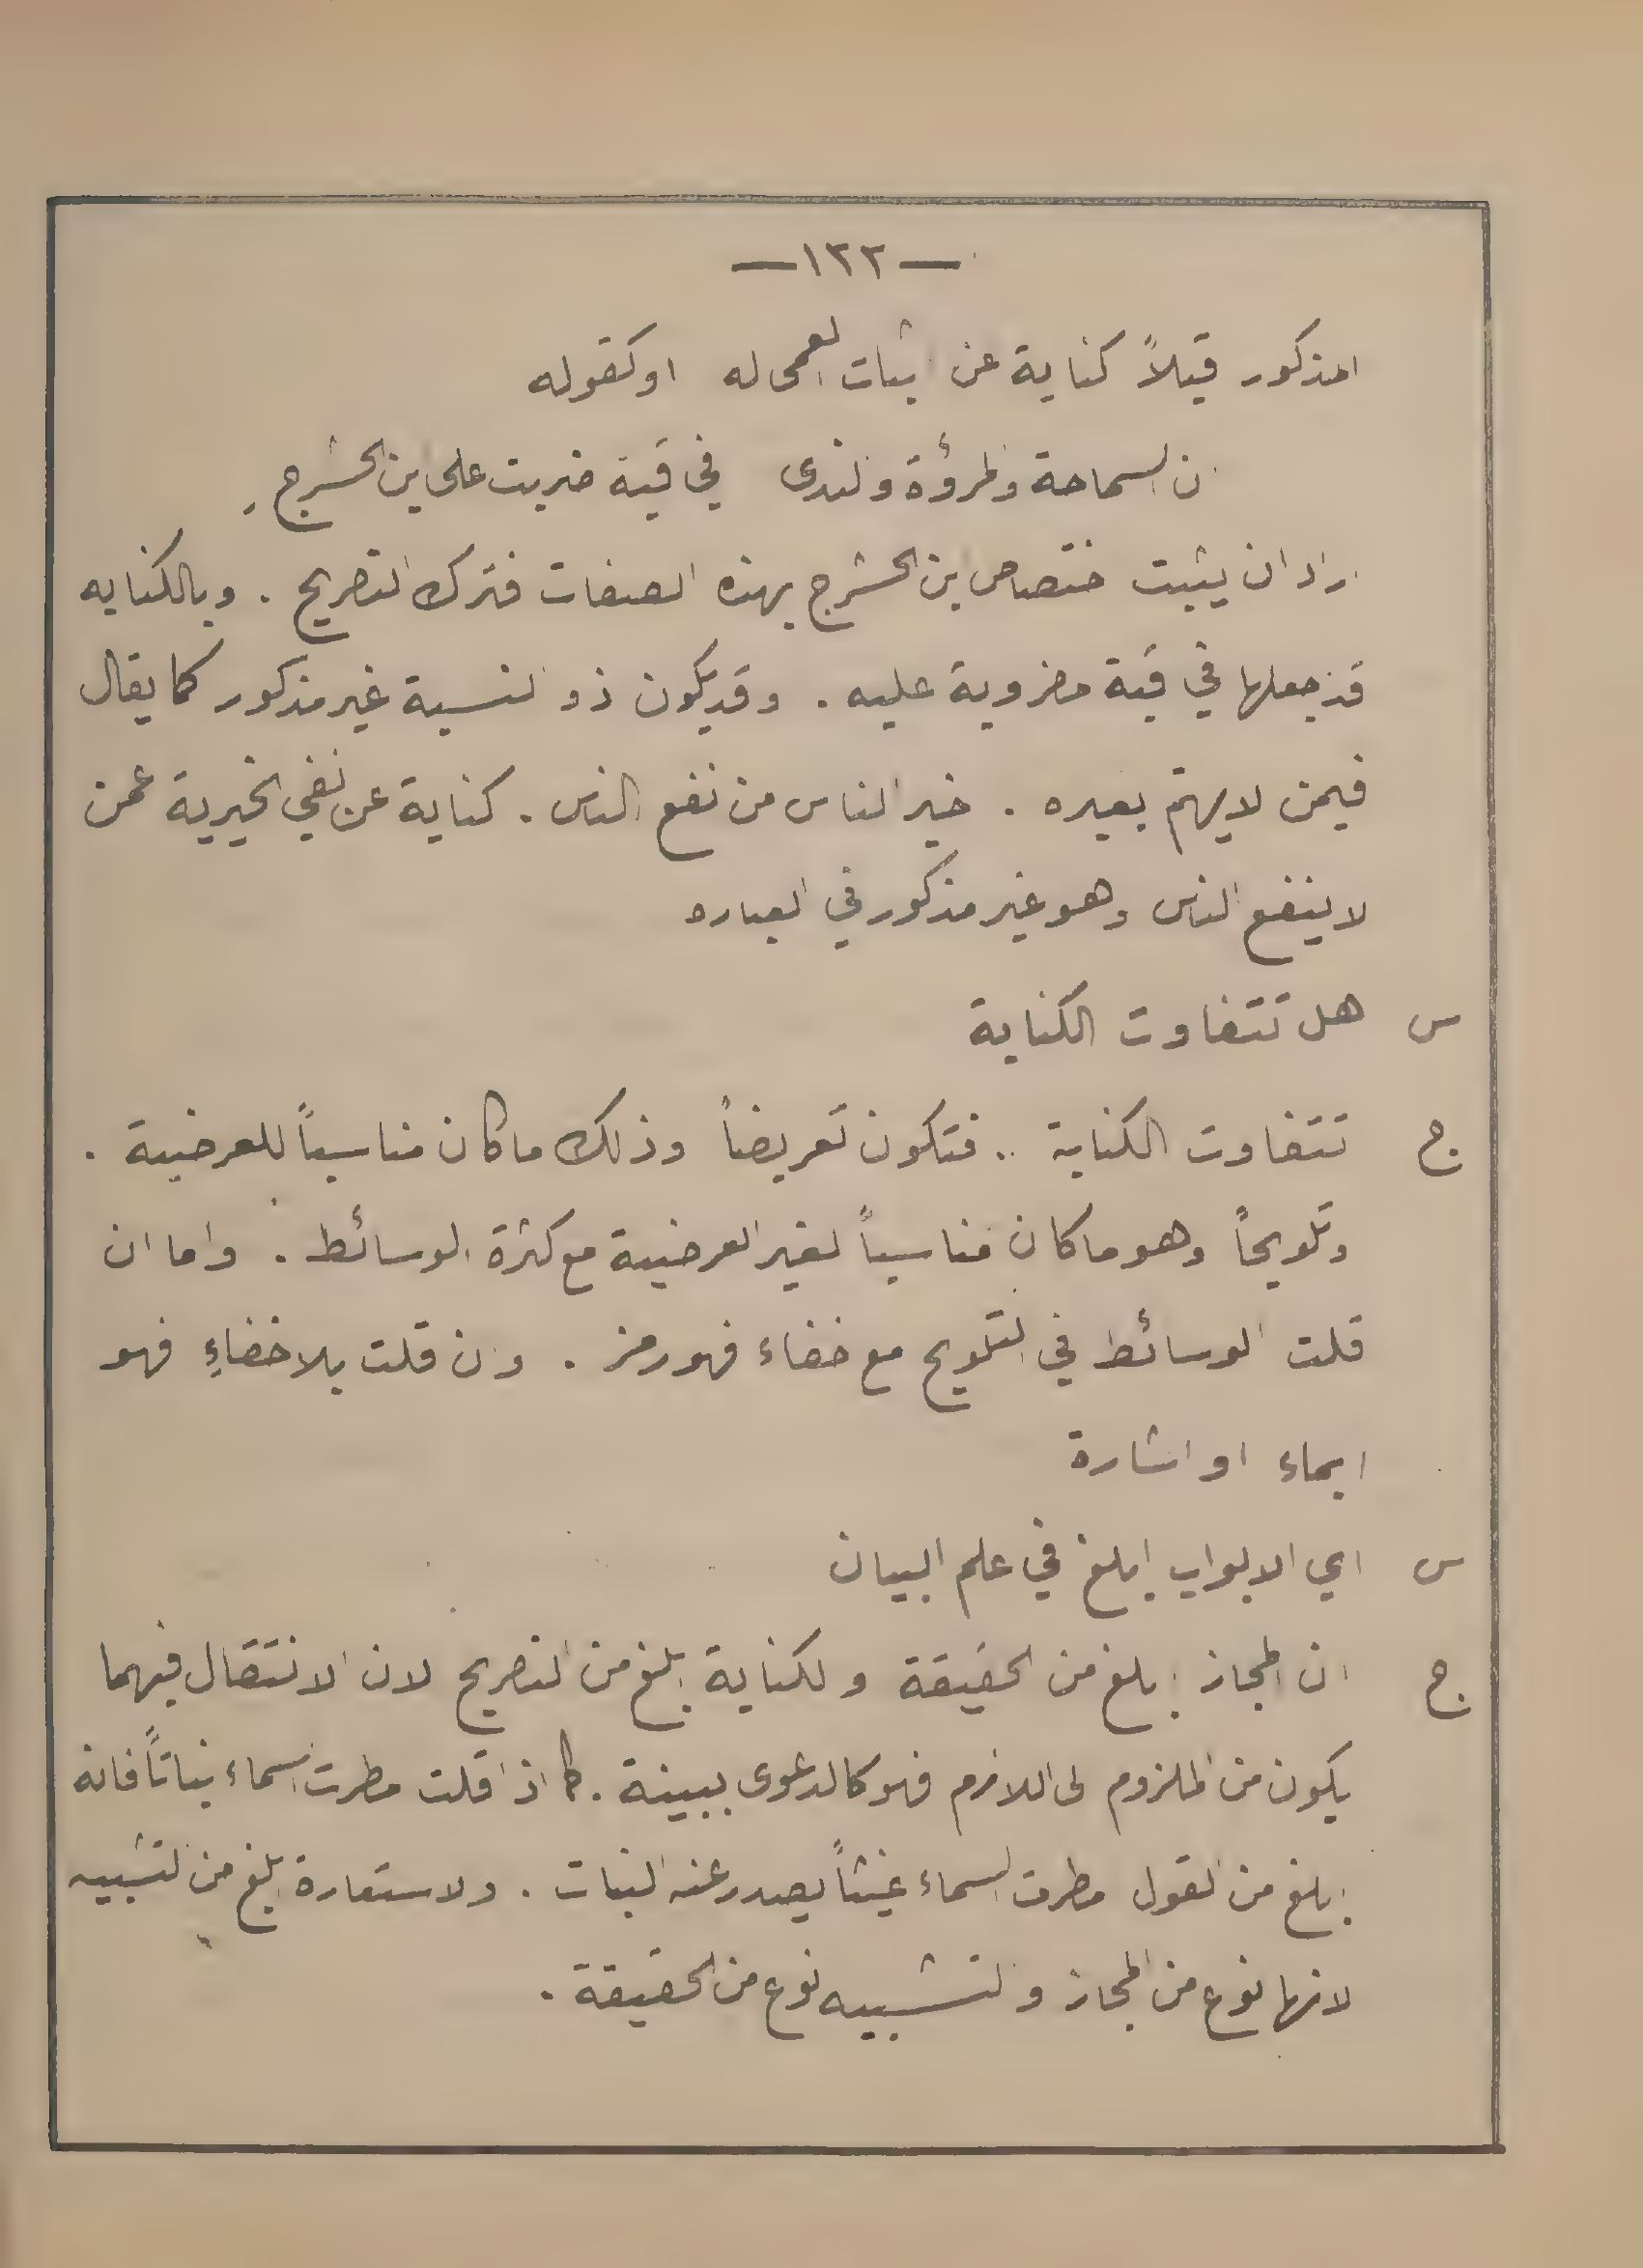 —١٢٢—
المذكور قبلاً كناية عن اثبات العمى له او كقوله
ان السماحة والمروءة والندى في قبة ضربت على ابن الحشرج
اراد ان يثبت اختصاص ابن الحشرج بهذه الصفات فترك التصريح . وبالكنايه
قد جعلها في قبة مضروبة عليه . وقد يكون ذو النسبة غير مذكور كما يقال
فيمن لا يهتم بغيره . خير الناس من نفع الناس . كناية عن نفي الخيرية عمن
لا ينفع الناس وهو غير مذكور في العباره
س هل تتفاوت الكناية
ج تتفاوت الكناية .. فتكون تعريضاً وذلك ما كان مناسباً للعرضية .
وتلويحاً وهو ما كان مناسباً لغير العرضية مع كثرة الوسائط . واما ان
قلت الوسائط في التلويح مع خفاء فهو رمز . وان قلت بلا خفاءِ فهو
ايماء او اشارة
س اي الابواب ابلغ في علم البيان
ج ان المجاز ابلغ من الحقيقة والكناية ابلغ من التصريح لان الانتقال فيهما
يكون من الملزوم الى اللازم فهو كالدعوى ببينة . كما اذا قلت مطرت السماء نباتاً فانه
ابلغ من القول مطرت السماء غيثاً يصدر عنه النبات . والاستعارة ابلغ من التشبيه
لانها نوع من المجاز والتشبيه نوع من الحقيقة .